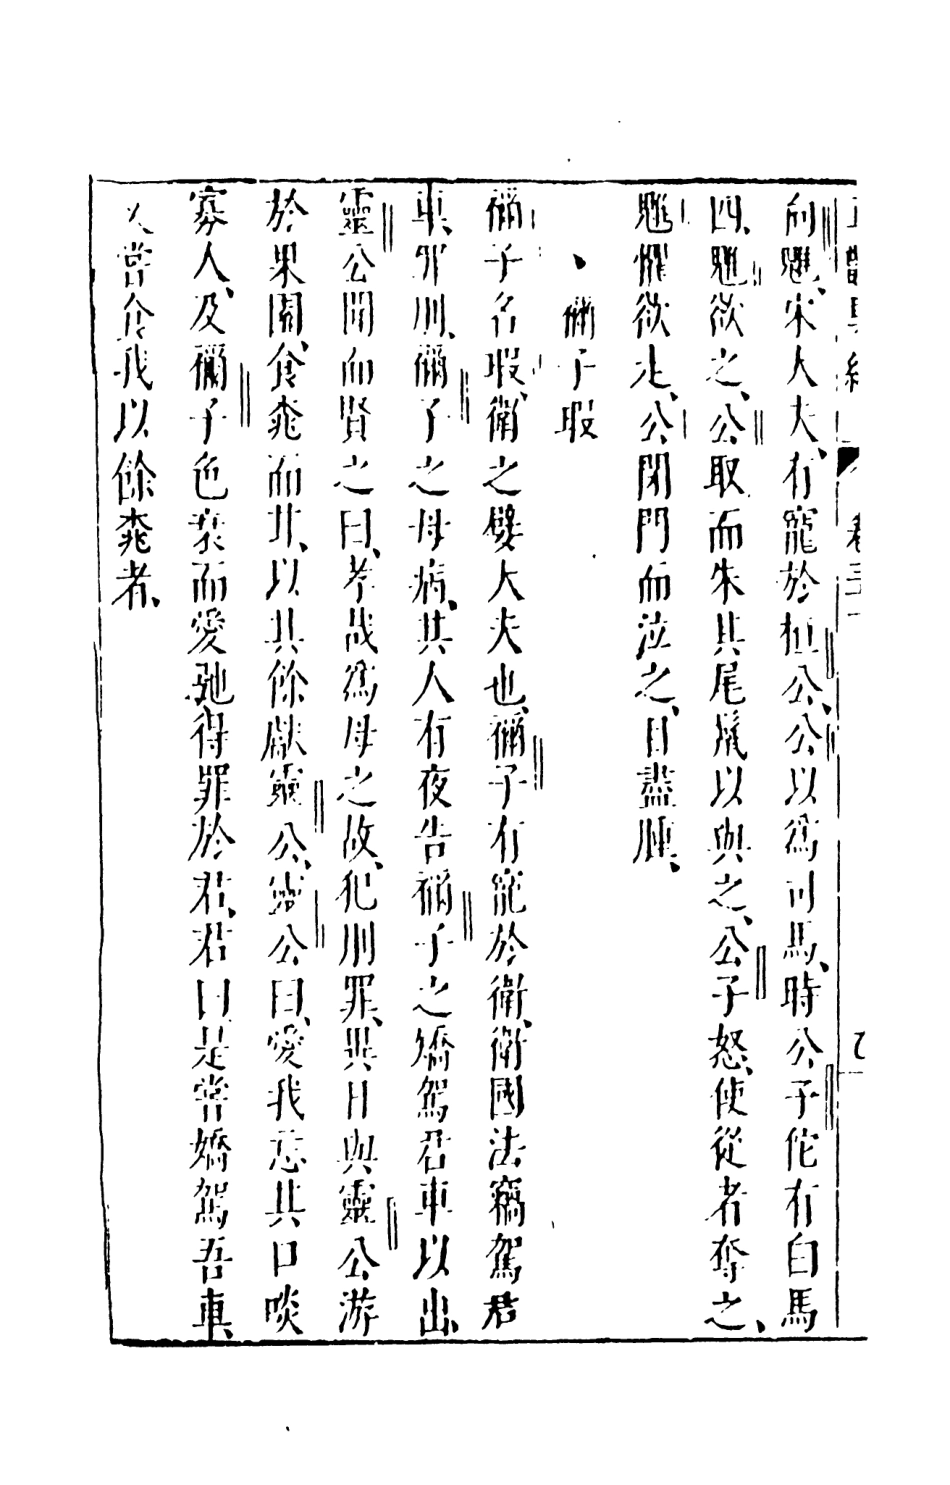 向魋、宋大夫、有寵於桓公、公以爲司馬、時公子佗有白馬
四、魋欲之、公取而朱其尾鬣以與之、公子怒、使從者奪之、
魋懼欲走、公閉門而泣之、目盡腫、
彌子瑕
彌子名瑕、衛之嬖大夫也、彌子有寵於衛、衛國法竊駕君
車、罪刖、彌子之母病、其人有夜告彌子之矯駕君車以出、
靈公聞而賢之曰、孝哉爲母之故、犯刖罪、異日與靈公游
於果園、食桃而甘、以其餘獻靈公、靈公曰、愛我忘其口啖
寡人、及彌子色衰而愛弛、得罪於君、君曰、是嘗矯駕吾車、
又嘗食我以餘桃者、
卷三十